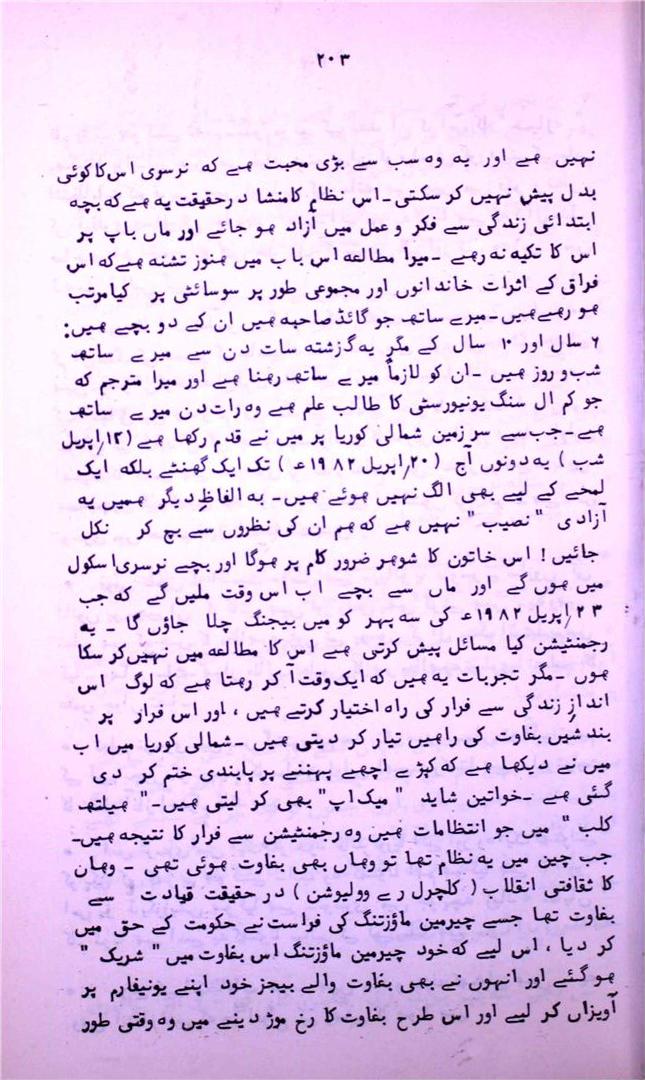 ۲۰۳
نہیں ہے اور یہ وہ سب سے بڑی محبت ہے کہ نرسری اس کا کوئی
بدل پیش نہیں کر سکتی۔ اس نظام کا منشا درحقیقت یہ ہے کہ بچہ
ابتدائی زندگی سے فکر و عمل میں آزاد ہو جائے اور ماں باپ پر
اس کا تکیہ نہ رہے ۔ میرا مطالعہ اس باب میں ہنوز تشنہ ہے کہ اس
فراق کے اثرات خاندانوں اور مجموعی طور پر سوسائٹی پر کیا مرتب
ہو رہے ہیں۔ میرے ساتھ جو گائڈ صاحبہ ہیں ان کے دو بچے ہیں:
۶ سال اور ۱۰ سال کے مگر یہ گزشتہ سات دن سے میرے ساتھ
شب و روز ہیں ۔ ان کو لازماً میرے ساتھ رہنا ہے اور میرا مترجم کہ
جو کم ال سنگ یونیورسٹی کا طالب علم ہے وہ رات دن میرے ساتھ
ہے۔ جب سے سرزمین شمالی کوریا پر میں نے قدم رکھا ہے (۱۳/اپریل
شب ) یہ دونوں آج ( ۲۰/اپریل ۱۹۸۲ء ) تک ایک گھنٹے بلکہ ایک
لمحے کے لیے بھی الگ نہیں ہوئے ہیں۔ بہ الفاظِ دیگر ہمیں یہ
آزادی " نصیب " نہیں ہے کہ ہم ان کی نظروں سے بچ کر نکل
جائیں ! اس خاتون کا شوہر ضرور کام پر ہوگا اور بچے نرسری اسکول
میں ہوں گے اور ماں سے بچے اب اس وقت ملیں گے کہ جب
۲۳/اپریل ۱۹۸۲ء کی سہ پہر کو میں بیجنگ چلا جاؤں گا ۔ یہ
رجمنٹیشن کیا مسائل پیش کرتی ہے اس کا مطالعہ میں نہیں کر سکا
ہوں ۔ مگر تجربات یہ ہیں کہ ایک وقت آ کر رہتا ہے کہ لوگ اس
اندازِ زندگی سے فرار کی راہ اختیار کرتے ہیں ، اور اس فرار پر
بندشیں بغاوت کی راہیں تیار کر دیتی ہیں ۔ شمالی کوریا میں اب
میں نے دیکھا ہے کہ کپڑے اچھے پہننے پر پابندی ختم کر دی
گئی ہے ۔ خواتین شاید " میک اپ" بھی کر لیتی ہیں۔ " ہیلتھ
کلب " میں جو انتظامات ہیں وہ رجمنٹیشن سے فرار کا نتیجہ ہیں۔
جب چین میں یہ نظام تھا تو وہاں بھی بغاوت ہوئی تھی ۔ وہاں
کا ثقافتی انقلاب ( کلچرل رے وولیوشن ) درحقیقت قیادت سے
بغاوت تھا جسے چیرمین ماؤزتنگ کی فراست نے حکومت کے حق میں
کر دیا ، اس لیے کہ خود چیرمین ماؤزتنگ اس بغاوت میں " شریک "
ہو گئے اور انہوں نے بھی بغاوت والے بیجز خود اپنے یونیفارم پر
آویزاں کر لیے اور اس طرح بغاوت کا رخ موڑ دینے میں وہ وقتی طور